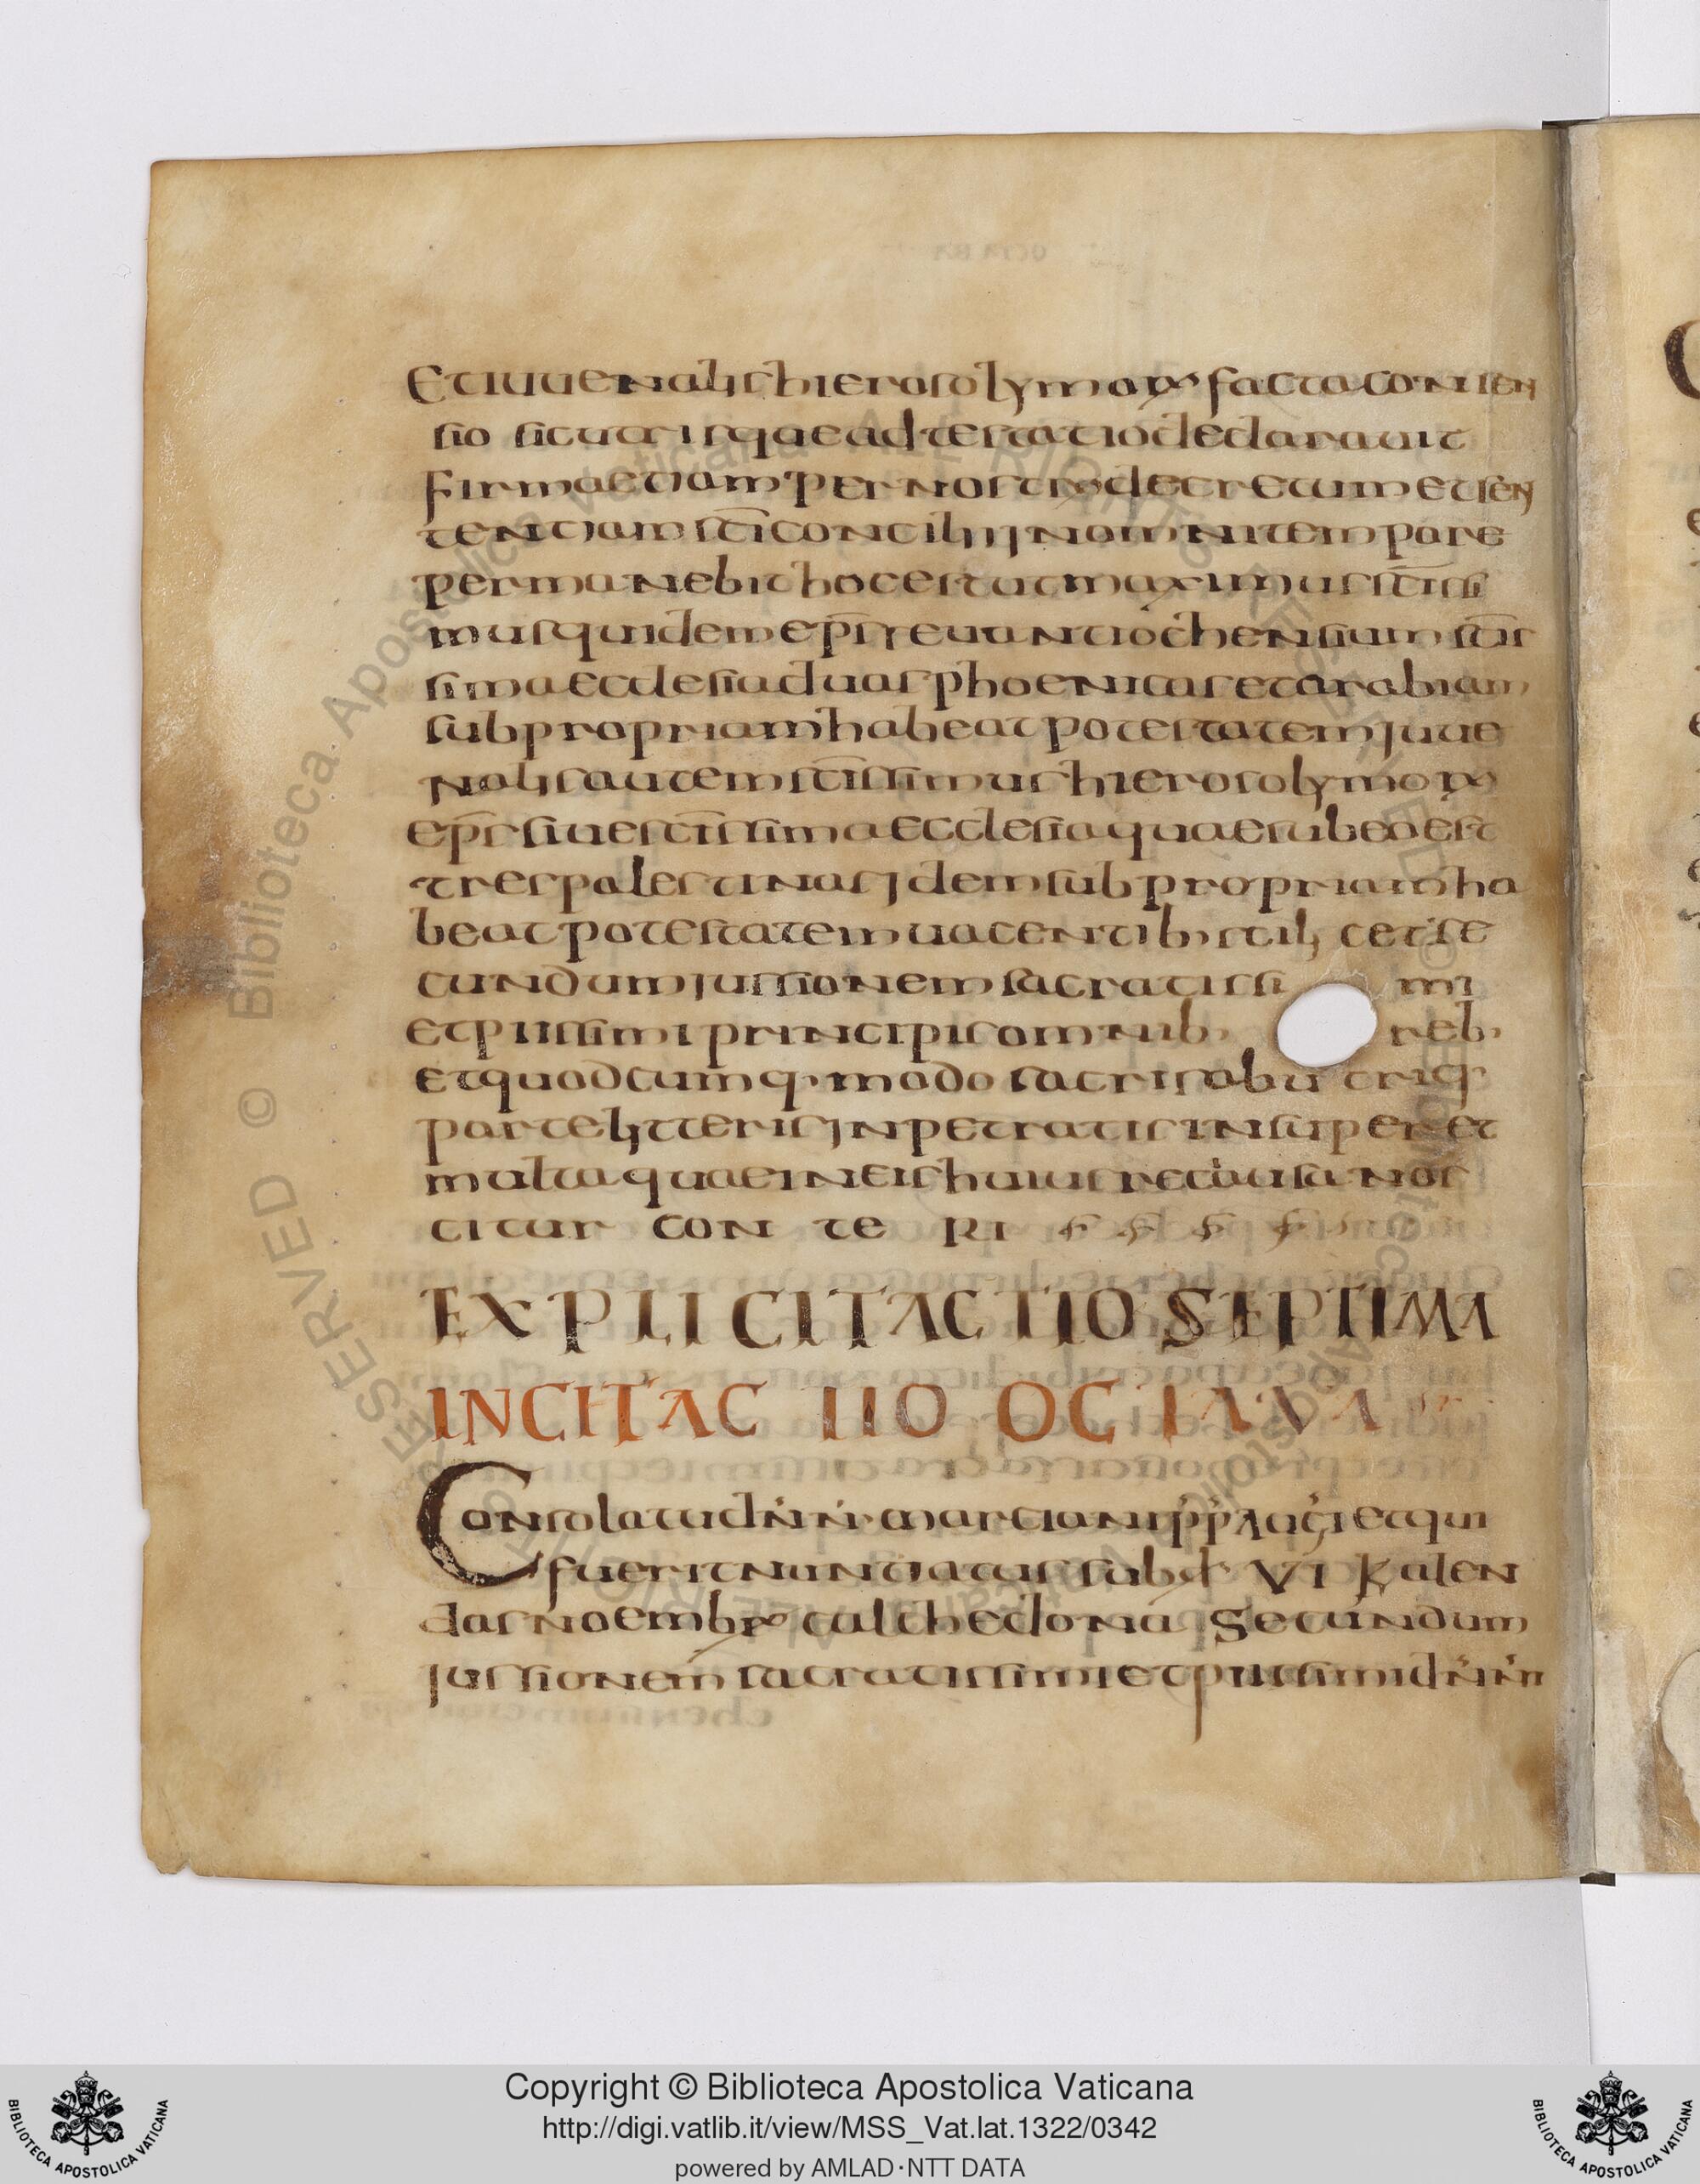 et iuuenalis hierosolymoꝝ facta consen
sio sicut utrisque adtestatio declarauit
firma etiam per nostrum decretum et sen
tentiam sc̄i concilii in omni tempore
permanebit hoc est ut maximus sc̄issi
mus quidem ep̄s seu antiochensium sc̄is
sima ecclesia duas phoenicas et arabiam
sub propriam habeat potestatem iuue
nalis autem sc̄issimus hierosolymoꝝ
ep̄s siue sc̄issima ecclesia quae sub eo est
tres palestinas idem sub propriam ha
beat potestatem uacentib· scilicet se
cundum iussionem sacratissi mi
et piissimi principis omnib· reb·
et quodcumq· modo sacris ab utriq·
parte litteris inpetratis insuper et
multa quae in eis huius rei causa nos
citur con te ri
EXPLICIT ACTIO SEPTIMA
INCIT ACTIO OCTAVA
Consolatu dn̄i n̄i marciani p̄p̄ aug̅ et qui
fuerit nuntiatus sub d· VI kalen
das noembꝝ calchedona secundum
iussionem sacratissimi et piissimi dn̄i n̄i
Copyright © Biblioteca Apostolica Vaticana
http://digi.vatlib.it/view/MSS_Vat.lat.1322/0342
powered by AMLAD·NTT DATA
BIBLIOTECA APOSTOLICA VATICANA
BIBLIOTECA APOSTOLICA VATICANA